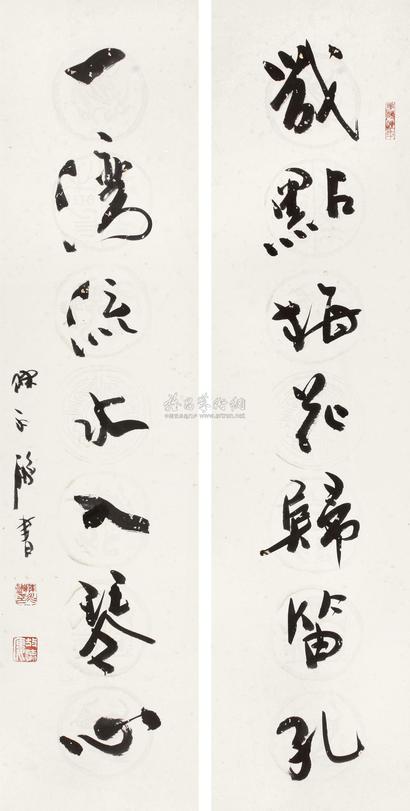 幾點梅花歸笛孔
一灣流水入琴心
書
雅昌藝術網